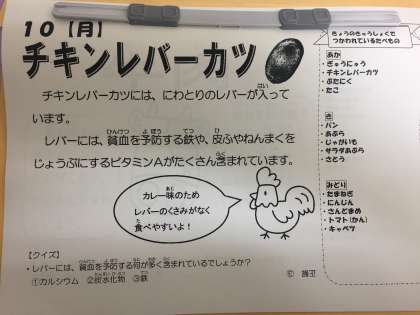 10【月】
チキンレバーカツ
チキンレバーカツには、にわとりのレバーが入って
います。
レバーには、貧血を予防する鉄や、皮ふやねんまくを
じょうぶにするビタミンAがたくさん含まれています。
カレー味のため
レバーのくさみがなく
食べやすいよ!
【クイズ】
・レバーには、貧血を予防する何が多く含まれているでしょうか?
①カルシウム ②炭水化物 ③鉄
きょうのきゅうしょくで
つかわれているたべもの
あか
・ぎゅうにゅう
・チキンレバーカツ
・ぶたにく
・たこ
き
・パン
・あぶら
・じゃがいも
・サラダあぶら
・さとう
みどり
・たまねぎ
・にんじん
・さんどまめ
・トマト(かん)
・キャベツ